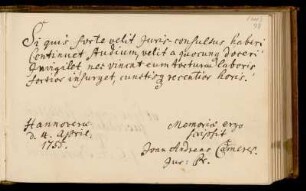 Si quis forte velit Juris-consultus haberi
Continuet studium, velit a quocunq doceri
Invigilet nec vincat eum tortura laboris
Fortior insurgat, cunctisq recentior horis.
Hannoverae
d. 4. April.
1755.
Memoriae ergo
scripsit
Joan Andreas
Jur: Pr.